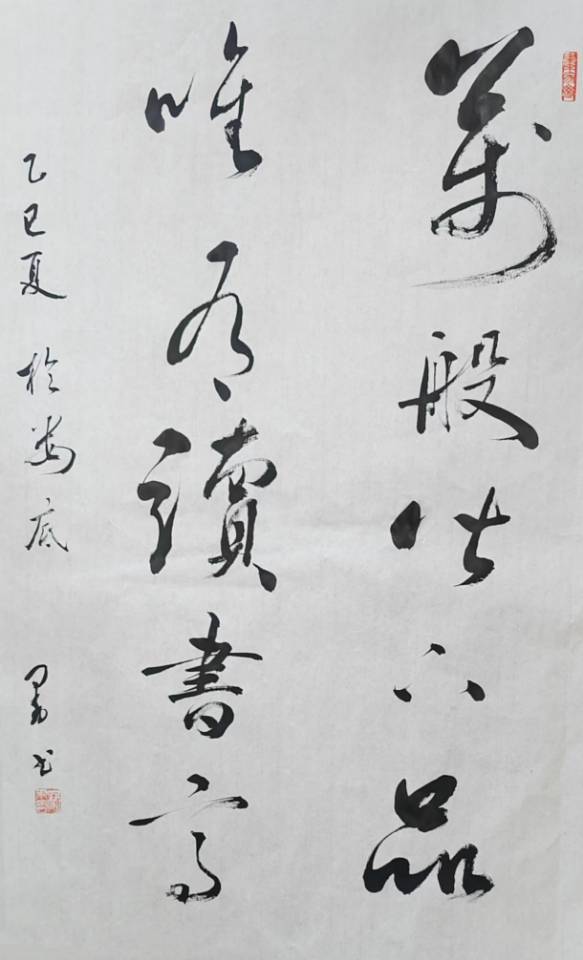 萬般皆下品
唯有讀書高
乙巳夏於婁底
書